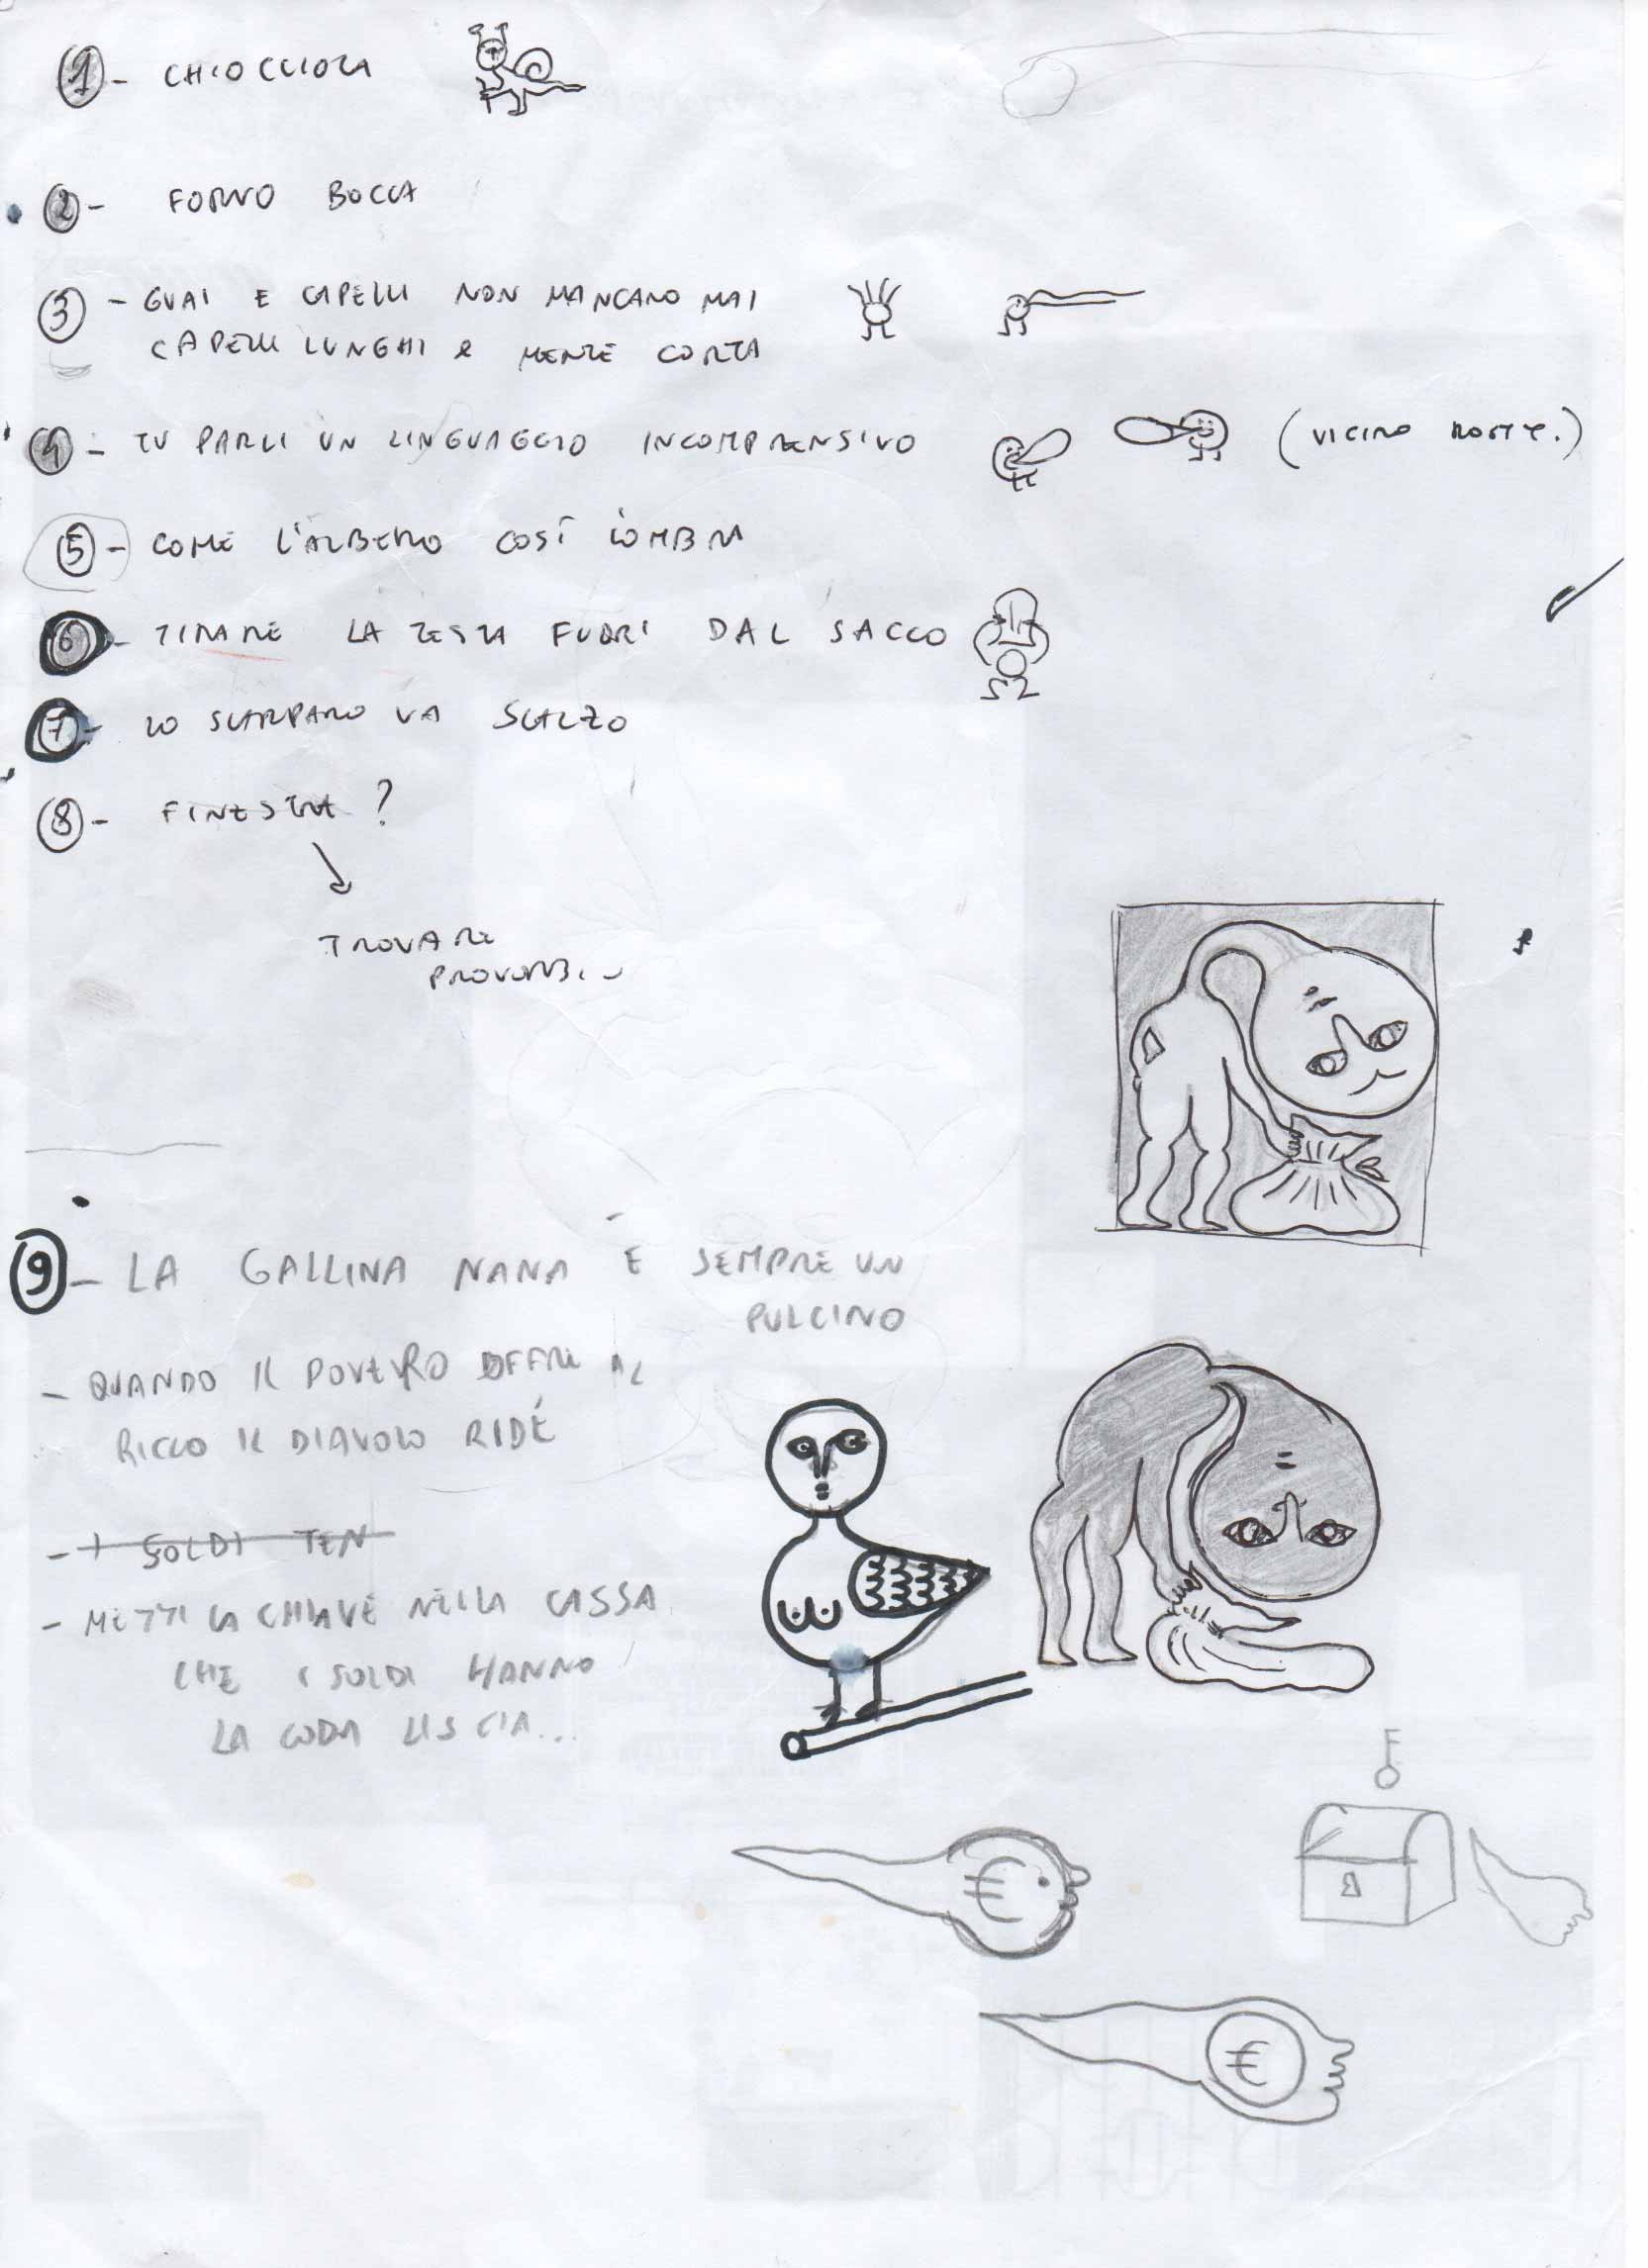 1 - CHIOCCIOLA
2 - FORNO BOCCA
3 - GUAI E CAPELLI NON MANCANO MAI
CAPELLI LUNGHI e MENTE CORTA
4 - TU PARLI UN LINGUAGGIO INCOMPRENSIVO (VICINO
5 - COME L'ALBERO COSÌ L'OMBRA
6 - TIRARE LA TESTA FUORI DAL SACCO
7 - LO SCARPARO VA SCALZO
8 - FINESTRA?
TROVARE
PROVERBIO
9 - LA GALLINA NANA È SEMPRE UN
PULCINO
- QUANDO IL POVERO OFFRE AL
RICCO IL DIAVOLO RIDE
- I SOLDI TEN
- METTI LA CHIAVE NELLA CASSA
CHE I SOLDI HANNO
LA CODA LISCIA...
€
€